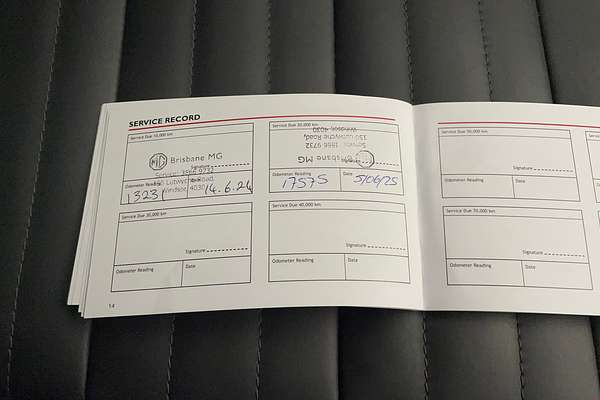 SERVICE RECORD
Service Due 10,000 km
MG Brisbane MG
Signature
Service: 3566 9732
Odometer Reading
150 Lutwyche Road,
Windsor, 4030
14.6.24
Service Due 20,000 km
Windsor, 4030
150 Lutwyche Road,
Service: 1866 9732
Brisbane MG
Signature
Odometer Reading
Date
17575
5/06/25
Service Due 30,000 km
Signature
Odometer Reading
Date
Service Due 40,000 km
Signature
Odometer Reading
Date
14
Service Due 50,000 km
Signature
Odometer Reading
Date
Service Due 70,000 km
Signature
Odometer Reading
Date